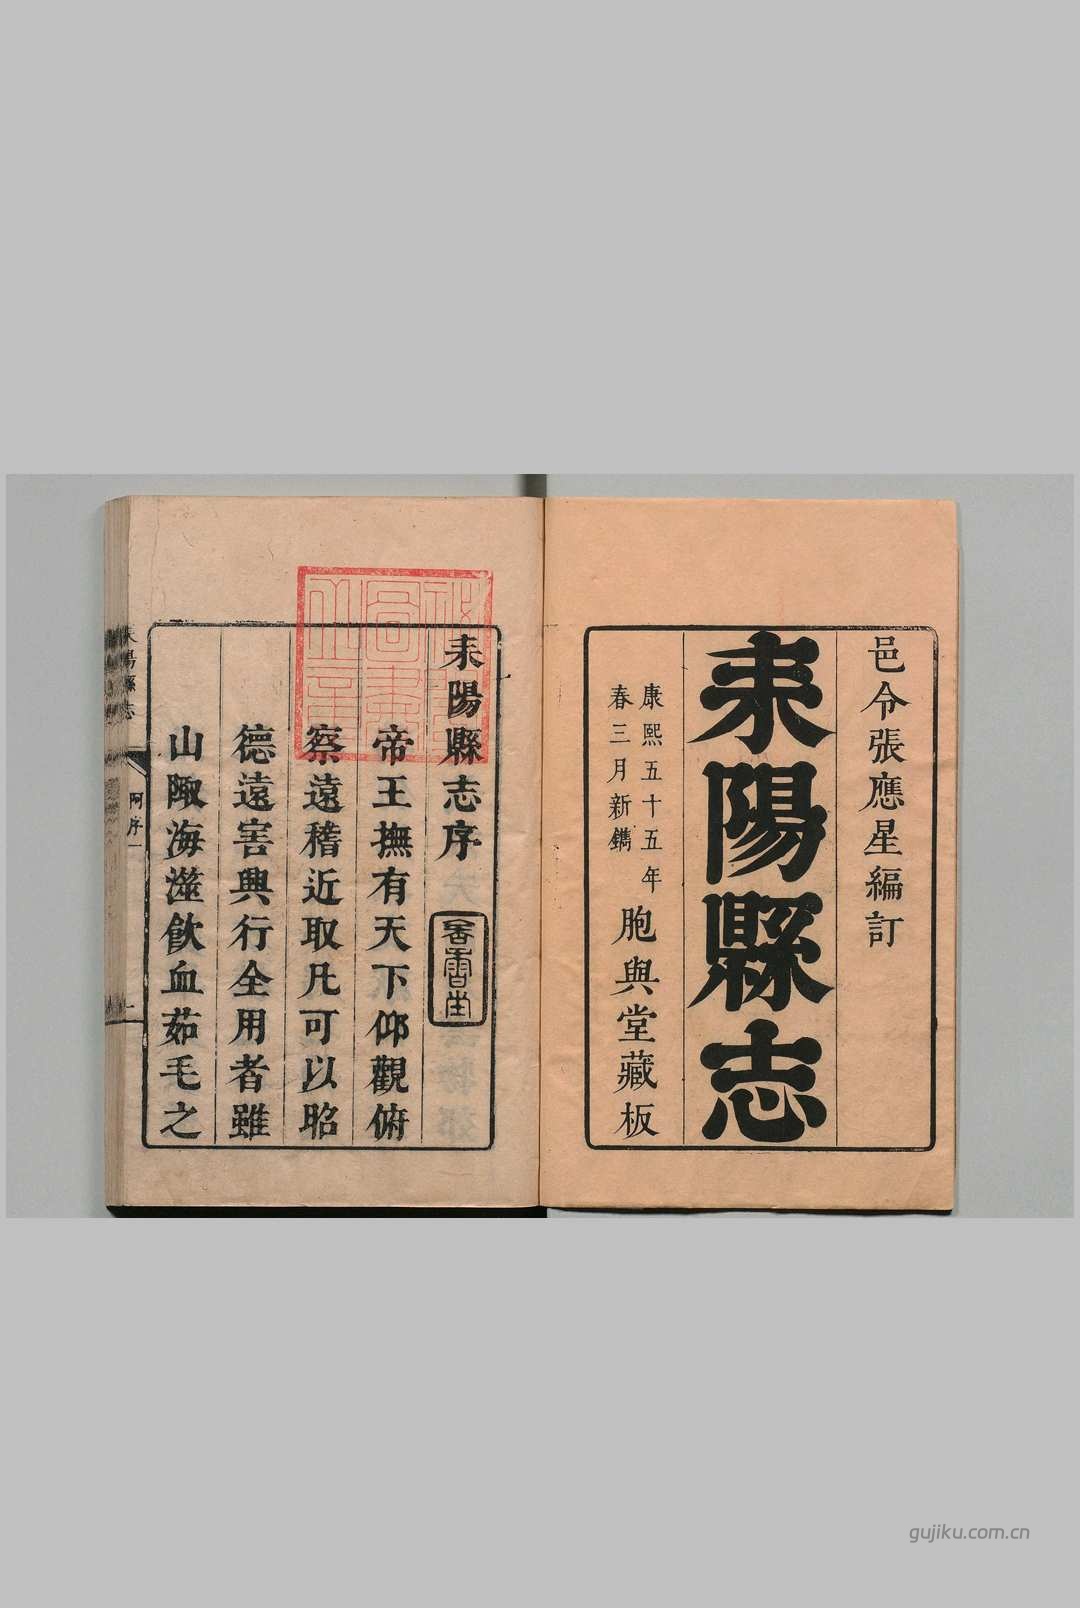 邑令張應星編訂
耒陽縣志
康熙五十五年
春三月新鐫
胞與堂藏板
耒陽縣志序
帝王撫有天下仰觀俯
察遠稽近取凡可以昭
德遠害興行全用者雖
山陬海澨飲血茹毛之
gujiku.com.cn